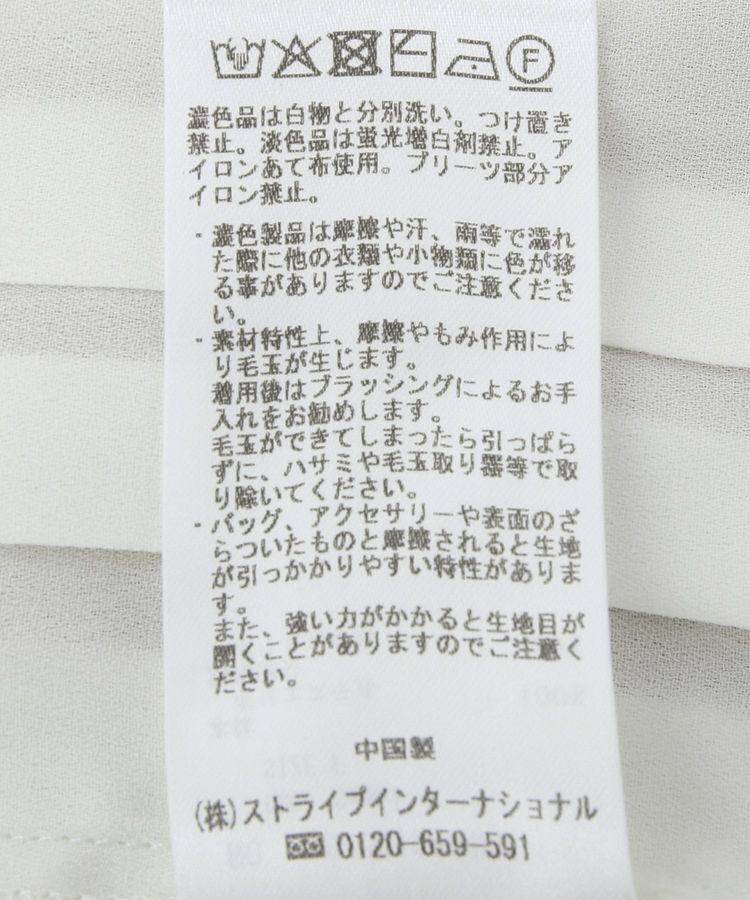 濃色品は白物と分別洗い。つけ置き
禁止。淡色品は蛍光増白剤禁止。ア
イロンあて布使用。プリーツ部分ア
イロン禁止。
・濃色製品は摩擦や汗、雨等で濡れ
た際に他の衣類や小物類に色が移
る事がありますのでご注意くださ
い。
・素材特性上、摩擦やもみ作用によ
り毛玉が生じます。
着用後はブラッシングによるお手
入れをお勧めします。
毛玉ができてしまったら引っぱら
ずに、ハサミや毛玉取り器等で取
り除いてください。
・バッグ、アクセサリーや表面のざ
らついたものと摩擦されると生地
が引っかかりやすい特性がありま
す。
また、強い力がかかると生地目が
開くことがありますのでご注意く
ださい。
中国製
(株)ストライプインターナショナル
0120-659-591